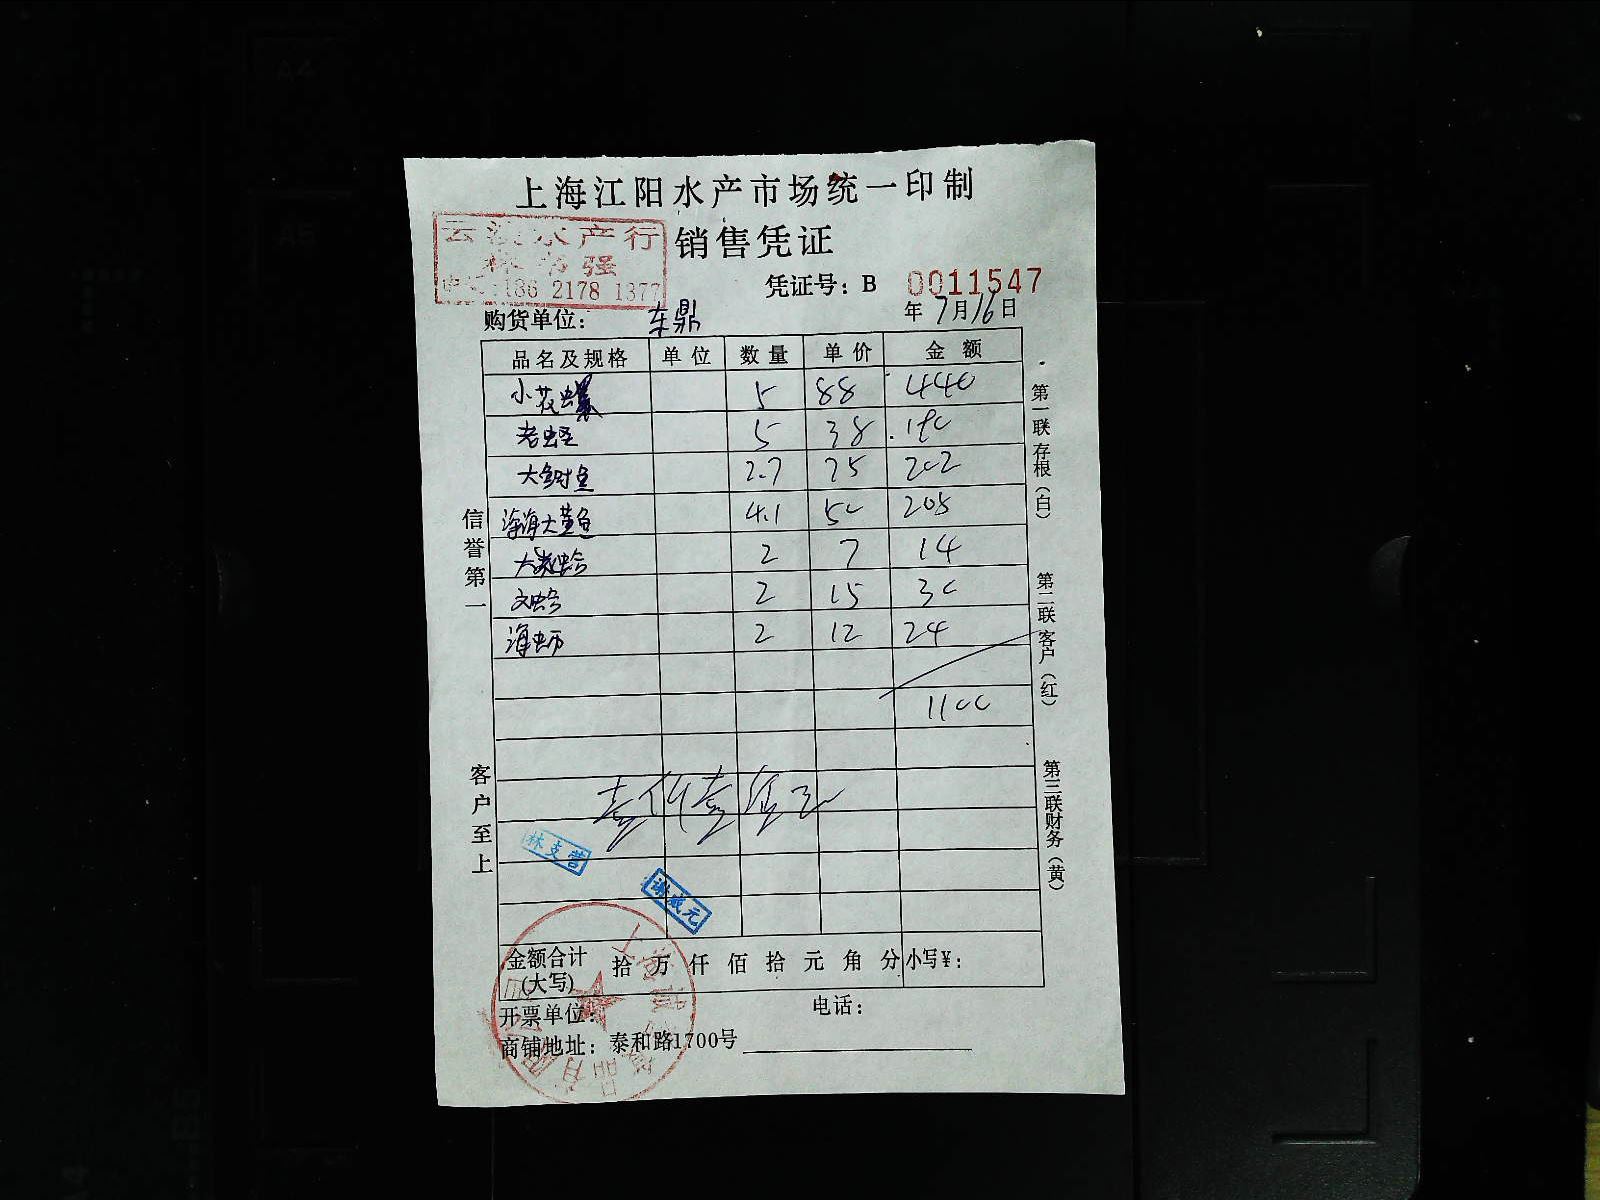 上海江阳水产市场统一印制
水产行
销售凭证
强
186 2178 1377
凭证号：B 0011547
购货单位：东鼎
年7月16日
品名及规格 单位 数量 单价 金额
小花螺 5 88 440
老蛏 5 38 190
大鲥鱼 2.7 75 202
深海大黄鱼 4.1 50 205
大黄蛤 2 7 14
文蛤 2 15 30
海蛎 2 12 24
1100
壹仟壹佰元
林支营
谢咸元
金额合计(大写) 拾 万 仟 佰 拾 元 角 分 小写¥：
开票单位：
电话：
商铺地址：泰和路1700号
信誉第一
客户至上
第一联 存根（白）
第二联 客户（红）
第三联 财务（黄）